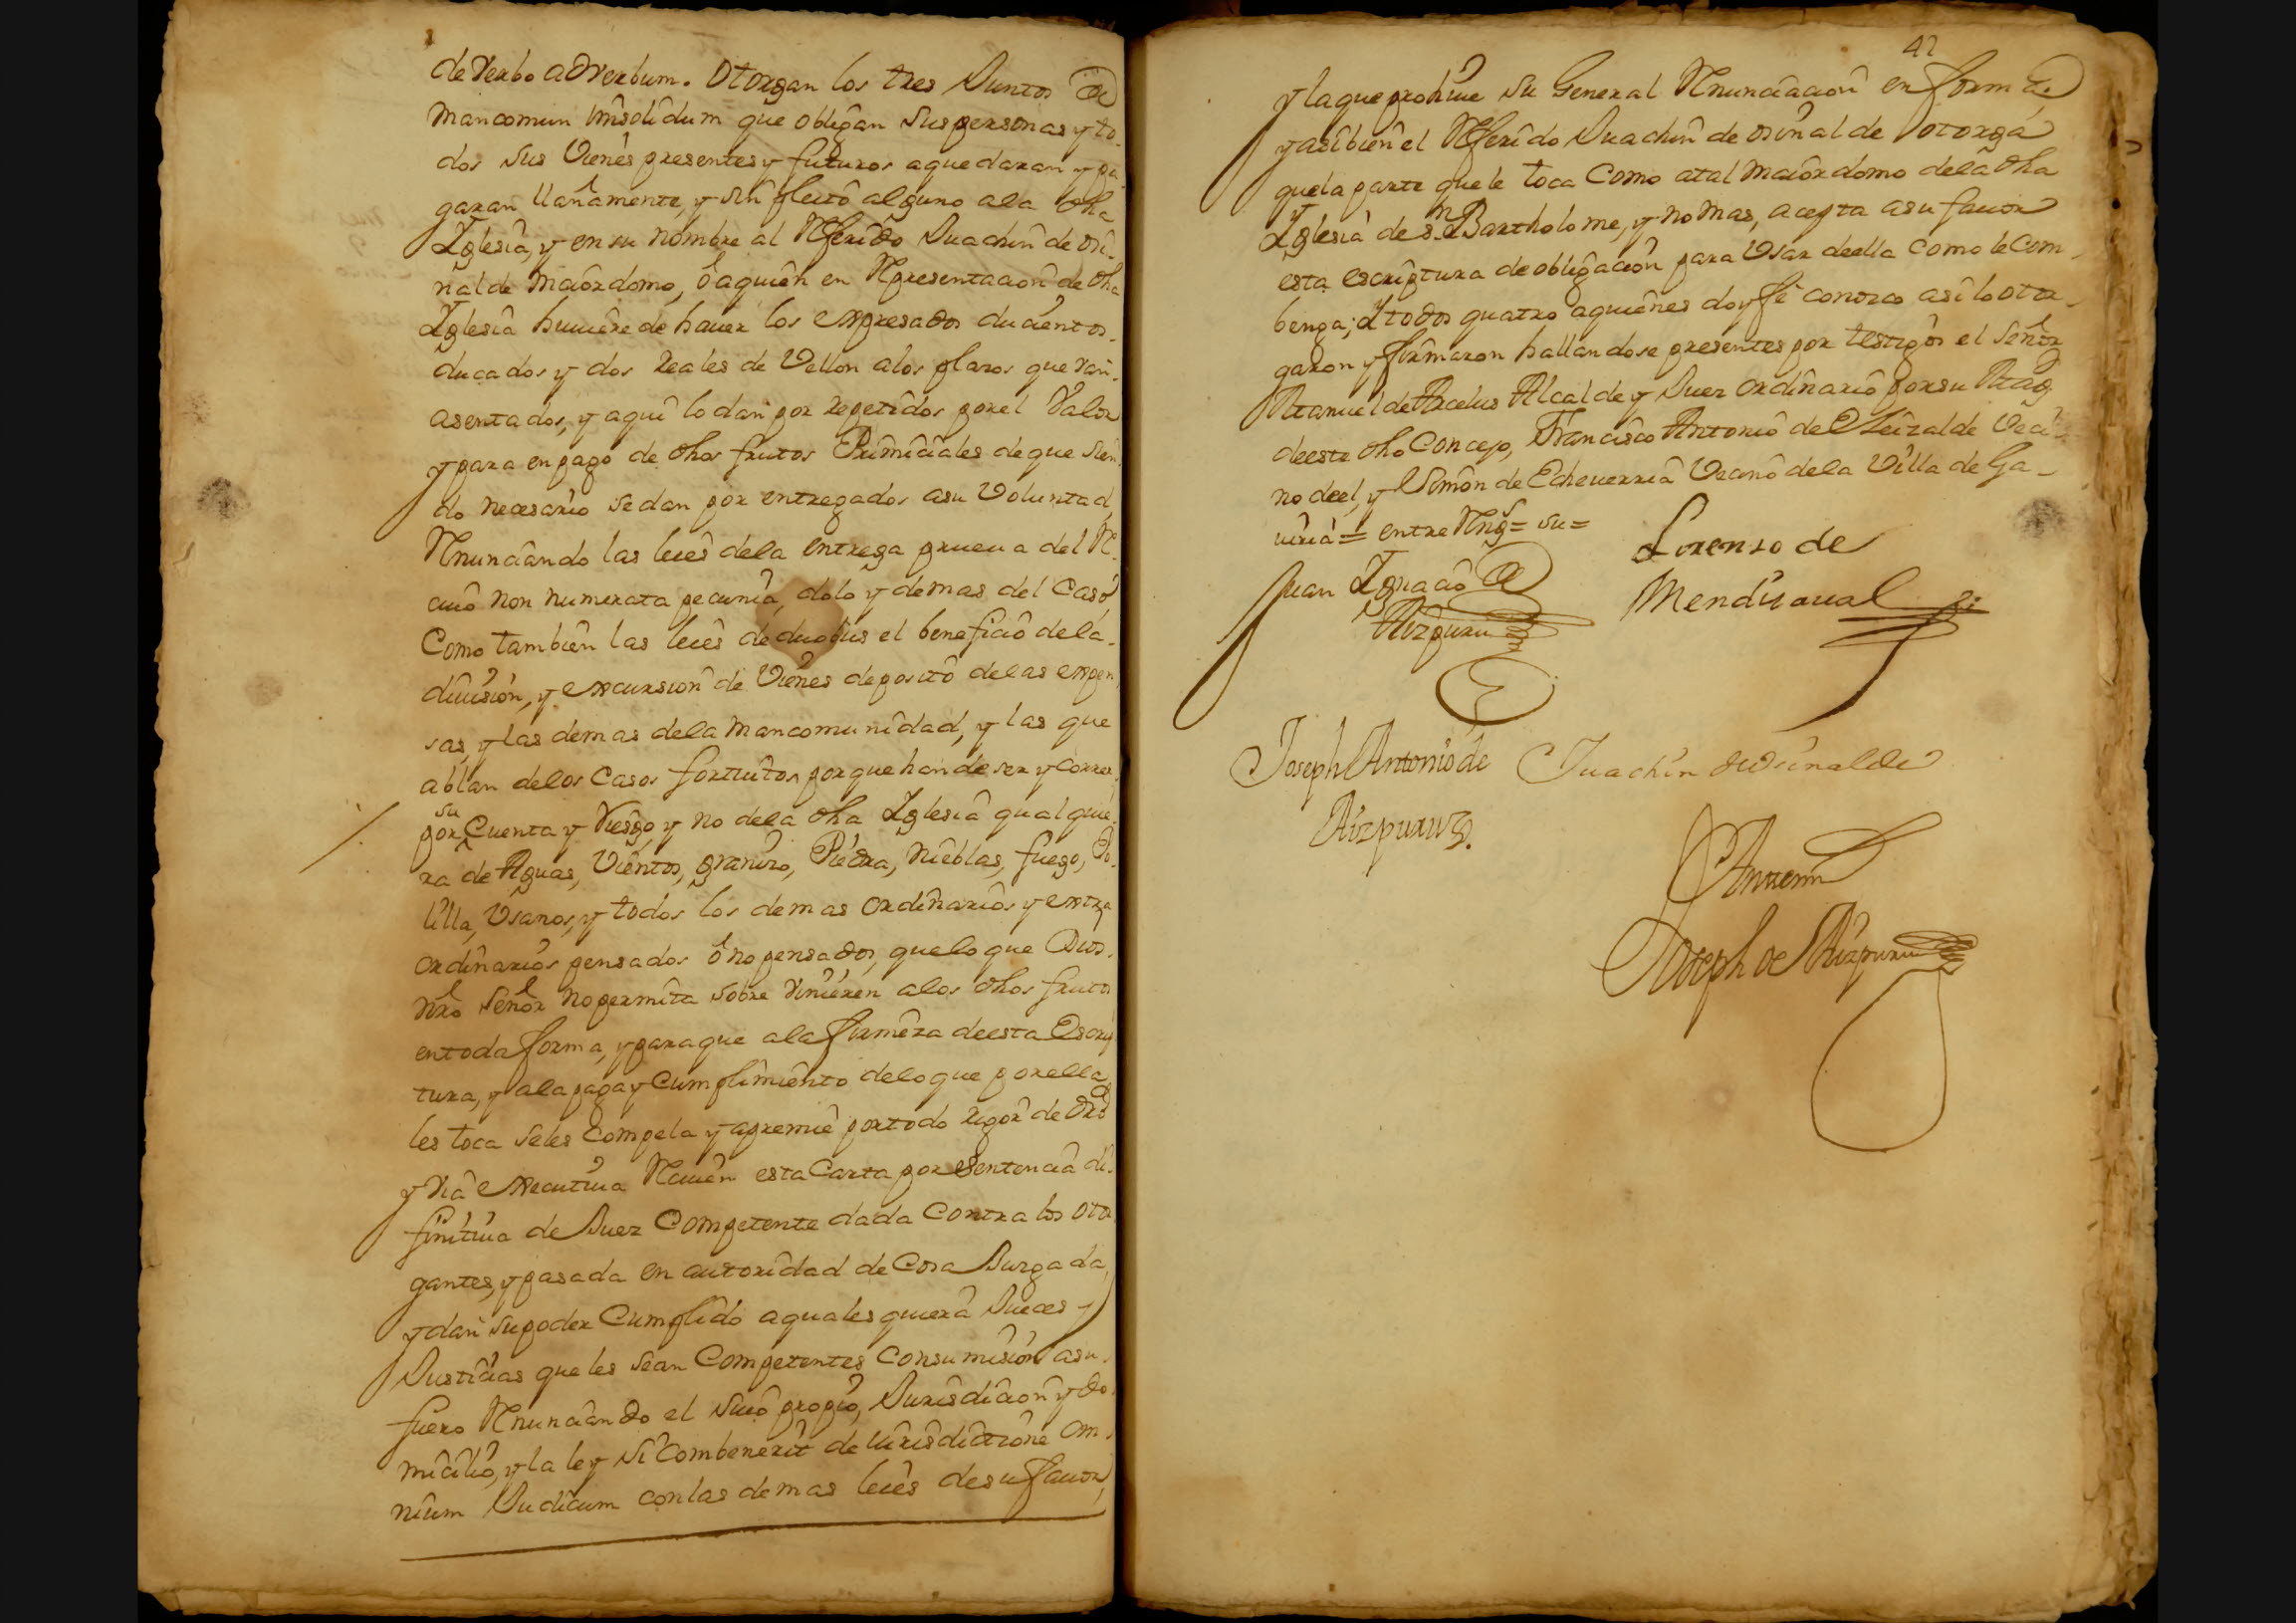 de Verbo adverbum. Otorgan los tres Juntos de
mancomun Insolidum que obligan sus personas y to-
dos sus Vienes presentes y futuros a que daran y pa-
garan llanamente, y sin pleito alguno a la dha
Iglesia, y en su nombre al Referido Juachin de Osi-
nalde maiordomo, ó aquien en Representacion de dha
Iglesia huuiere de hauer los expresados ducientos
ducados y dos Reales de Vellon alos plazos que van
asentados, y aqui lo dan por repetidos por el Valor
y para en pago de dhos frutos Primiciales de que sien-
do necesario se dan por entregados asu Voluntad,
Renunciando las leies dela entrega prueua del Re-
ciuo non numerata pecunia, dolo y demas del Caso
Como tambien las leies de duobus el beneficio dela
diuision, y excursion de Vienes deposito delas expen-
sas, y las demas dela mancomunidad, y las que
ablan delos Casos fortuitos, por que han de ser y correr
por su Cuenta y Riesgo, y no dela dha Iglesia qualquie-
ra de Aguas, Vientos, granizo, Piedra, Nieblas, fuego, Po-
lilla, Usanos, y todos los demas ordinarios y extra
ordinarios pensados ó no pensados, quelo que Dios
nro Señor no permita sobre vinieren alos dhos frutos
entoda forma, y paraque ala firmeza deesta Escrip-
tura, y ala paga y Cumplimiento delo que por ella
les toca seles Compela y apremie por todo rigor de dro
y via executiua Reciuen esta Carta por sentencia di-
finitiua de Juez Competente dada Contra los otor-
gantes, y pasada en autoridad de Cosa Juzgada,
y dan su poder Cumplido a quales quiera Jueces y
Justicias que les sean Competentes con sumision asu
fuero Renunciando el suio propio, Jurisdicion y do-
micilio, y la ley si combenerit de iurisdictione om-
nium Judicum con las demas leies desu fauor,
42
y la que prohiue su General Renunciacion en forma,
y asibien el Referido Juachin de osinalde otorga
que la parte que le toca Como atal maiordomo dela dha
Iglesia de Sn Bartholome, y no mas, acepta asu fauor
esta escriptura de obligacion para Usar deella como le Com-
benga; Y todos quatro aquienes doy fé conozco asi lo otor-
garon y firmaron hallandose presentes por testigos el Señor
Manuel de Arcelus Alcalde y Juez ordinario por su Magd
deeste dho Concejo, Francisco Antonio de Eleizalde Veci-
no deel, y Simon de Echeuerria Vecino dela Villa de Ga-
uiria = entre Rengs = su =
Juan Ignacio de
Aizpuru
Lorenzo de
Mendizaual
Joseph Antonio de
Aizpuru
Juachin de Osinalde
Antemi
Joseph de Aizpuru